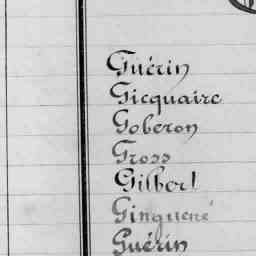 Guérin
Gicquaire
Goberon
Gross
Gilbert
Ginguené
Guérin